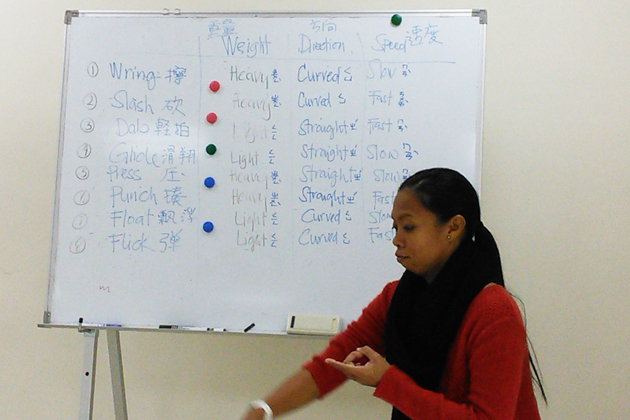 重量 方向
Weight Direction Speed 速度
① Wring 擰 Heavy Curved Slow
② Slash 砍 Heavy Curved Fast
③ Dab 輕拍 Light Straight Fast
④ Glide 滑翔 Light Straight Slow
⑤ Press 压 Heavy Straight Slow
Punch 揍 Heavy Straight Fast
Float 飄浮 Light Curved Slow
Flick 弹 Light Curved Fas
m